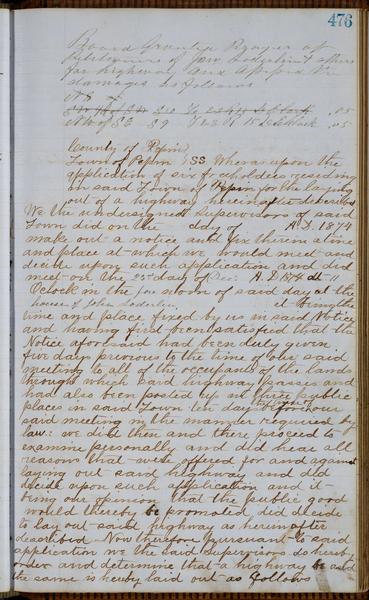 476
Board Granted Prayer of
Petitioners of John Soderlint & others
for highway and
damages as follows
N E
.05
NW of SE S9 .05
County of Pepin
Town of Pepin } SS Whereas upon the
application of six freeholders residing
in said Town of Pepin for the laying
out of a highway hereinafter described
We the undersigned Supervisors of said
Town did on the day of A.D. 1874
make out a notice and fix therein a time
and place at which we would meet and
decide upon such application and did
meet on the day of Dec. A.D. 1874 at
Oclock in the fore noon of said day at the
house of John Soderlin it being the
time and place fixed by us in said Notice
and having first been satisfied that the
Notice aforesaid had been duly given
five days previous to the time of our said
meeting to all of the occupants of the lands
through which said highway passes and
had also been posted up in three public
places in said Town ten days before our
said meeting in the manner required by
law: we did then and there proceed to
examine personally and did hear all
reasons that were offered for and against
laying out said highway and did
decide upon such application and it
being our opinion that the public good
would thereby be promoted did decide
to lay out said highway as herinafter
described Now therefore pursuant to said
application we the said Supervisors do hereby
order and determine that a highway be and
the same is hereby laid out as follows